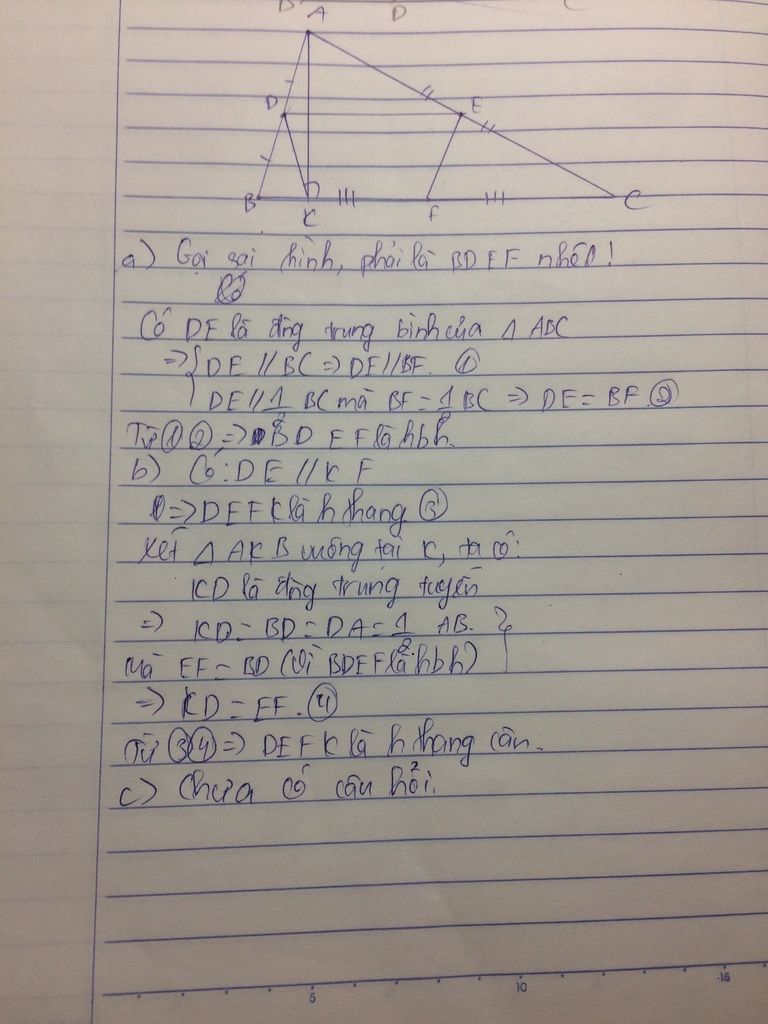 A
D
E
B
K
F
C
a) Gọi sai hình, phải là BDEF nhé!
Có DE là đng trung bình của Δ ABC
=> { DE // BC => DE // BF. ①
DE // 1/2 BC mà BF = 1/2 BC => DE = BF ②
Từ ① ② => BDEF là hbh.
b) Có: DE // KF
=> DEFK là h thang ③
Xét Δ AKB vuông tại K, ta có:
KD là đng trung tuyến
=> KD = BD = DA = 1/2 AB. }
Mà EF = BD (vì BDEF là hbh)
=> KD = EF. ④
Từ ③ ④ => DEFK là h thang cân.
c) Chưa có câu hỏi.
5 10 15